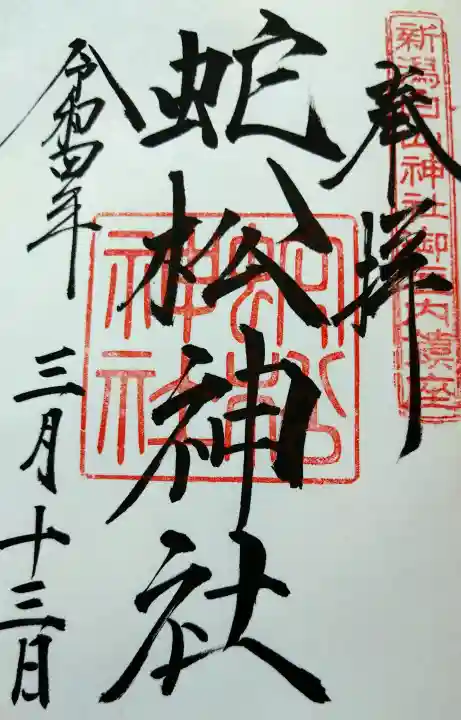 奉拝
新潟白山神社御境内鎮座
蛇松神社
蛇松神社
令和四年
三月十三日